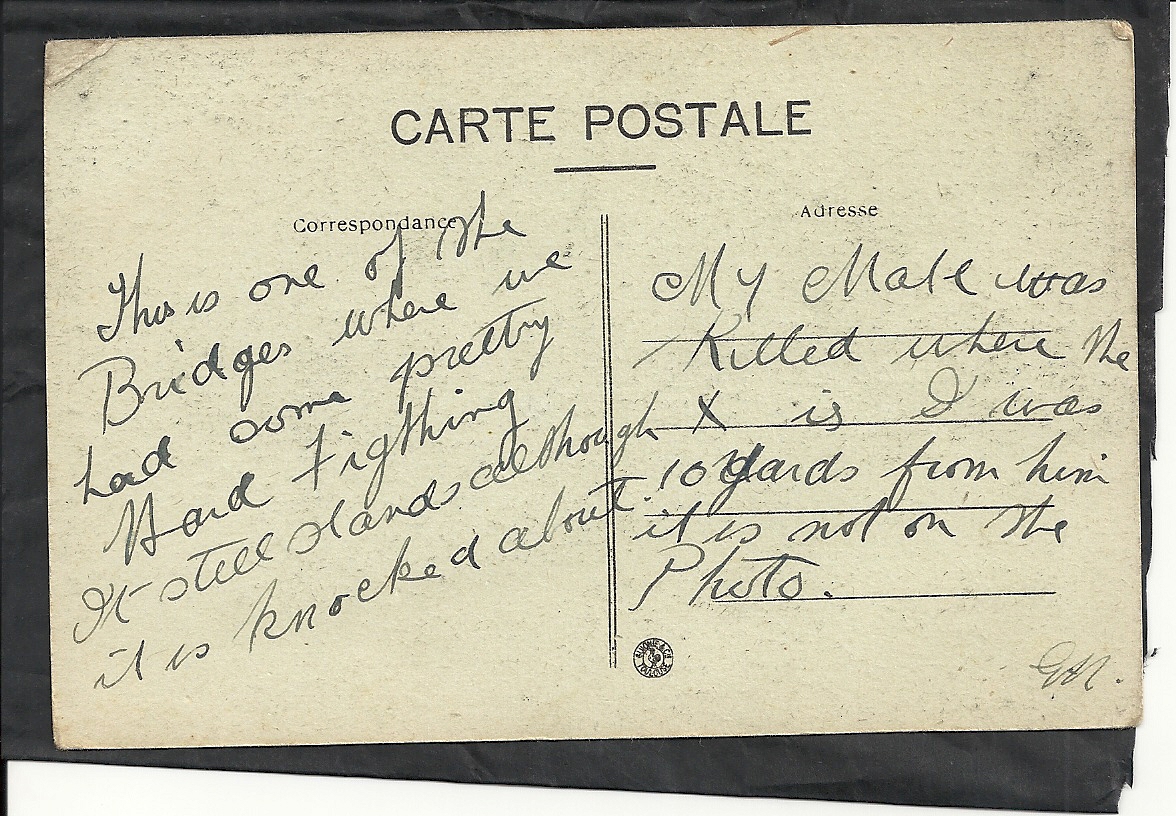 CARTE POSTALE
Correspondance
This is one of the
Bridges where we
had some pretty
Hard Figthing
It still stands although
it is knocked about.
Adresse
My Mate was
Killed where the
X is I was
10 Yards from him
it is not on the
Photo.